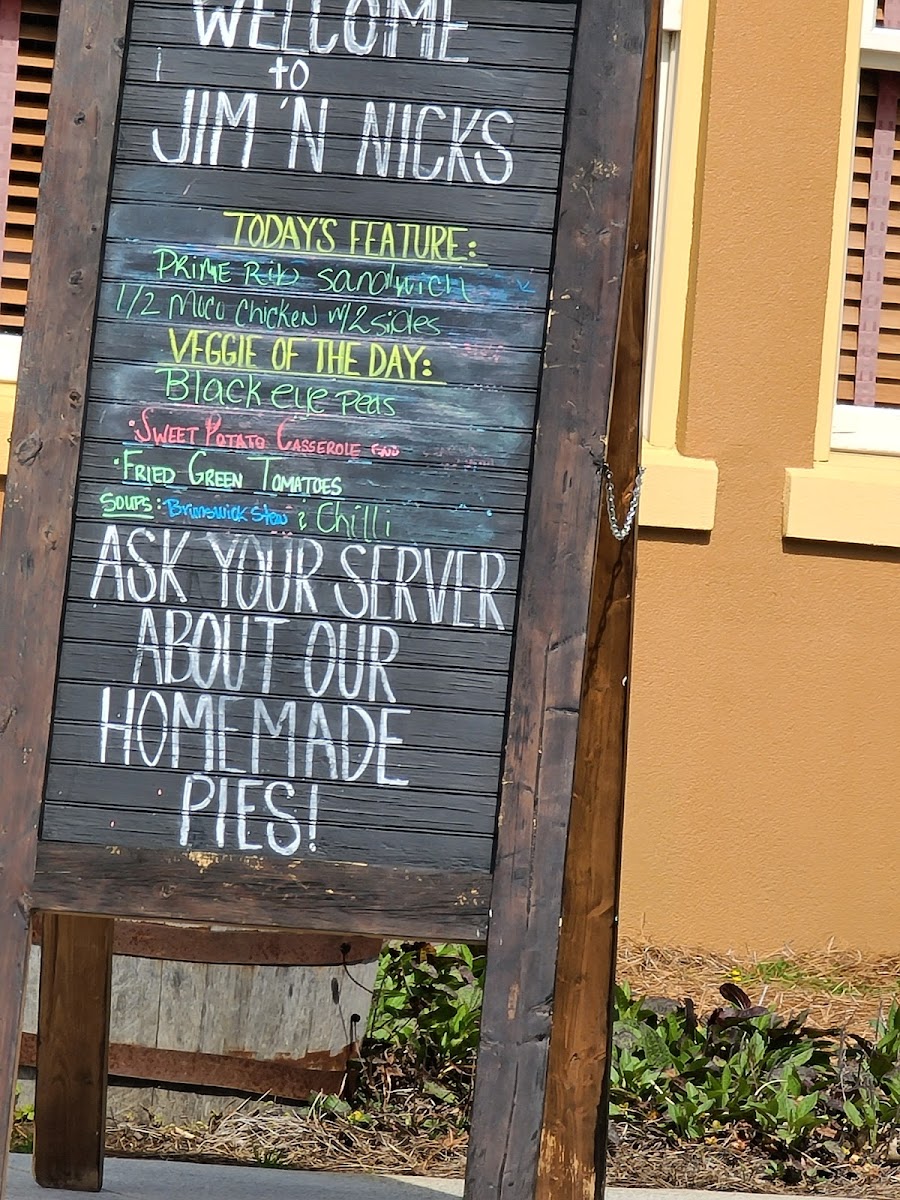 WELCOME
to
JIM 'N NICKS
TODAY'S FEATURE:
PRIME RIB SANDWICH
1/2 MOCO CHICKEN W/2 sides
VEGGIE OF THE DAY:
Black eye Peas
·SWEET POTATO CASSEROLE
·FRIED GREEN TOMATOES
SOUPS: Brunswick Stew & Chilli
ASK YOUR SERVER
ABOUT OUR
HOMEMADE
PIES!